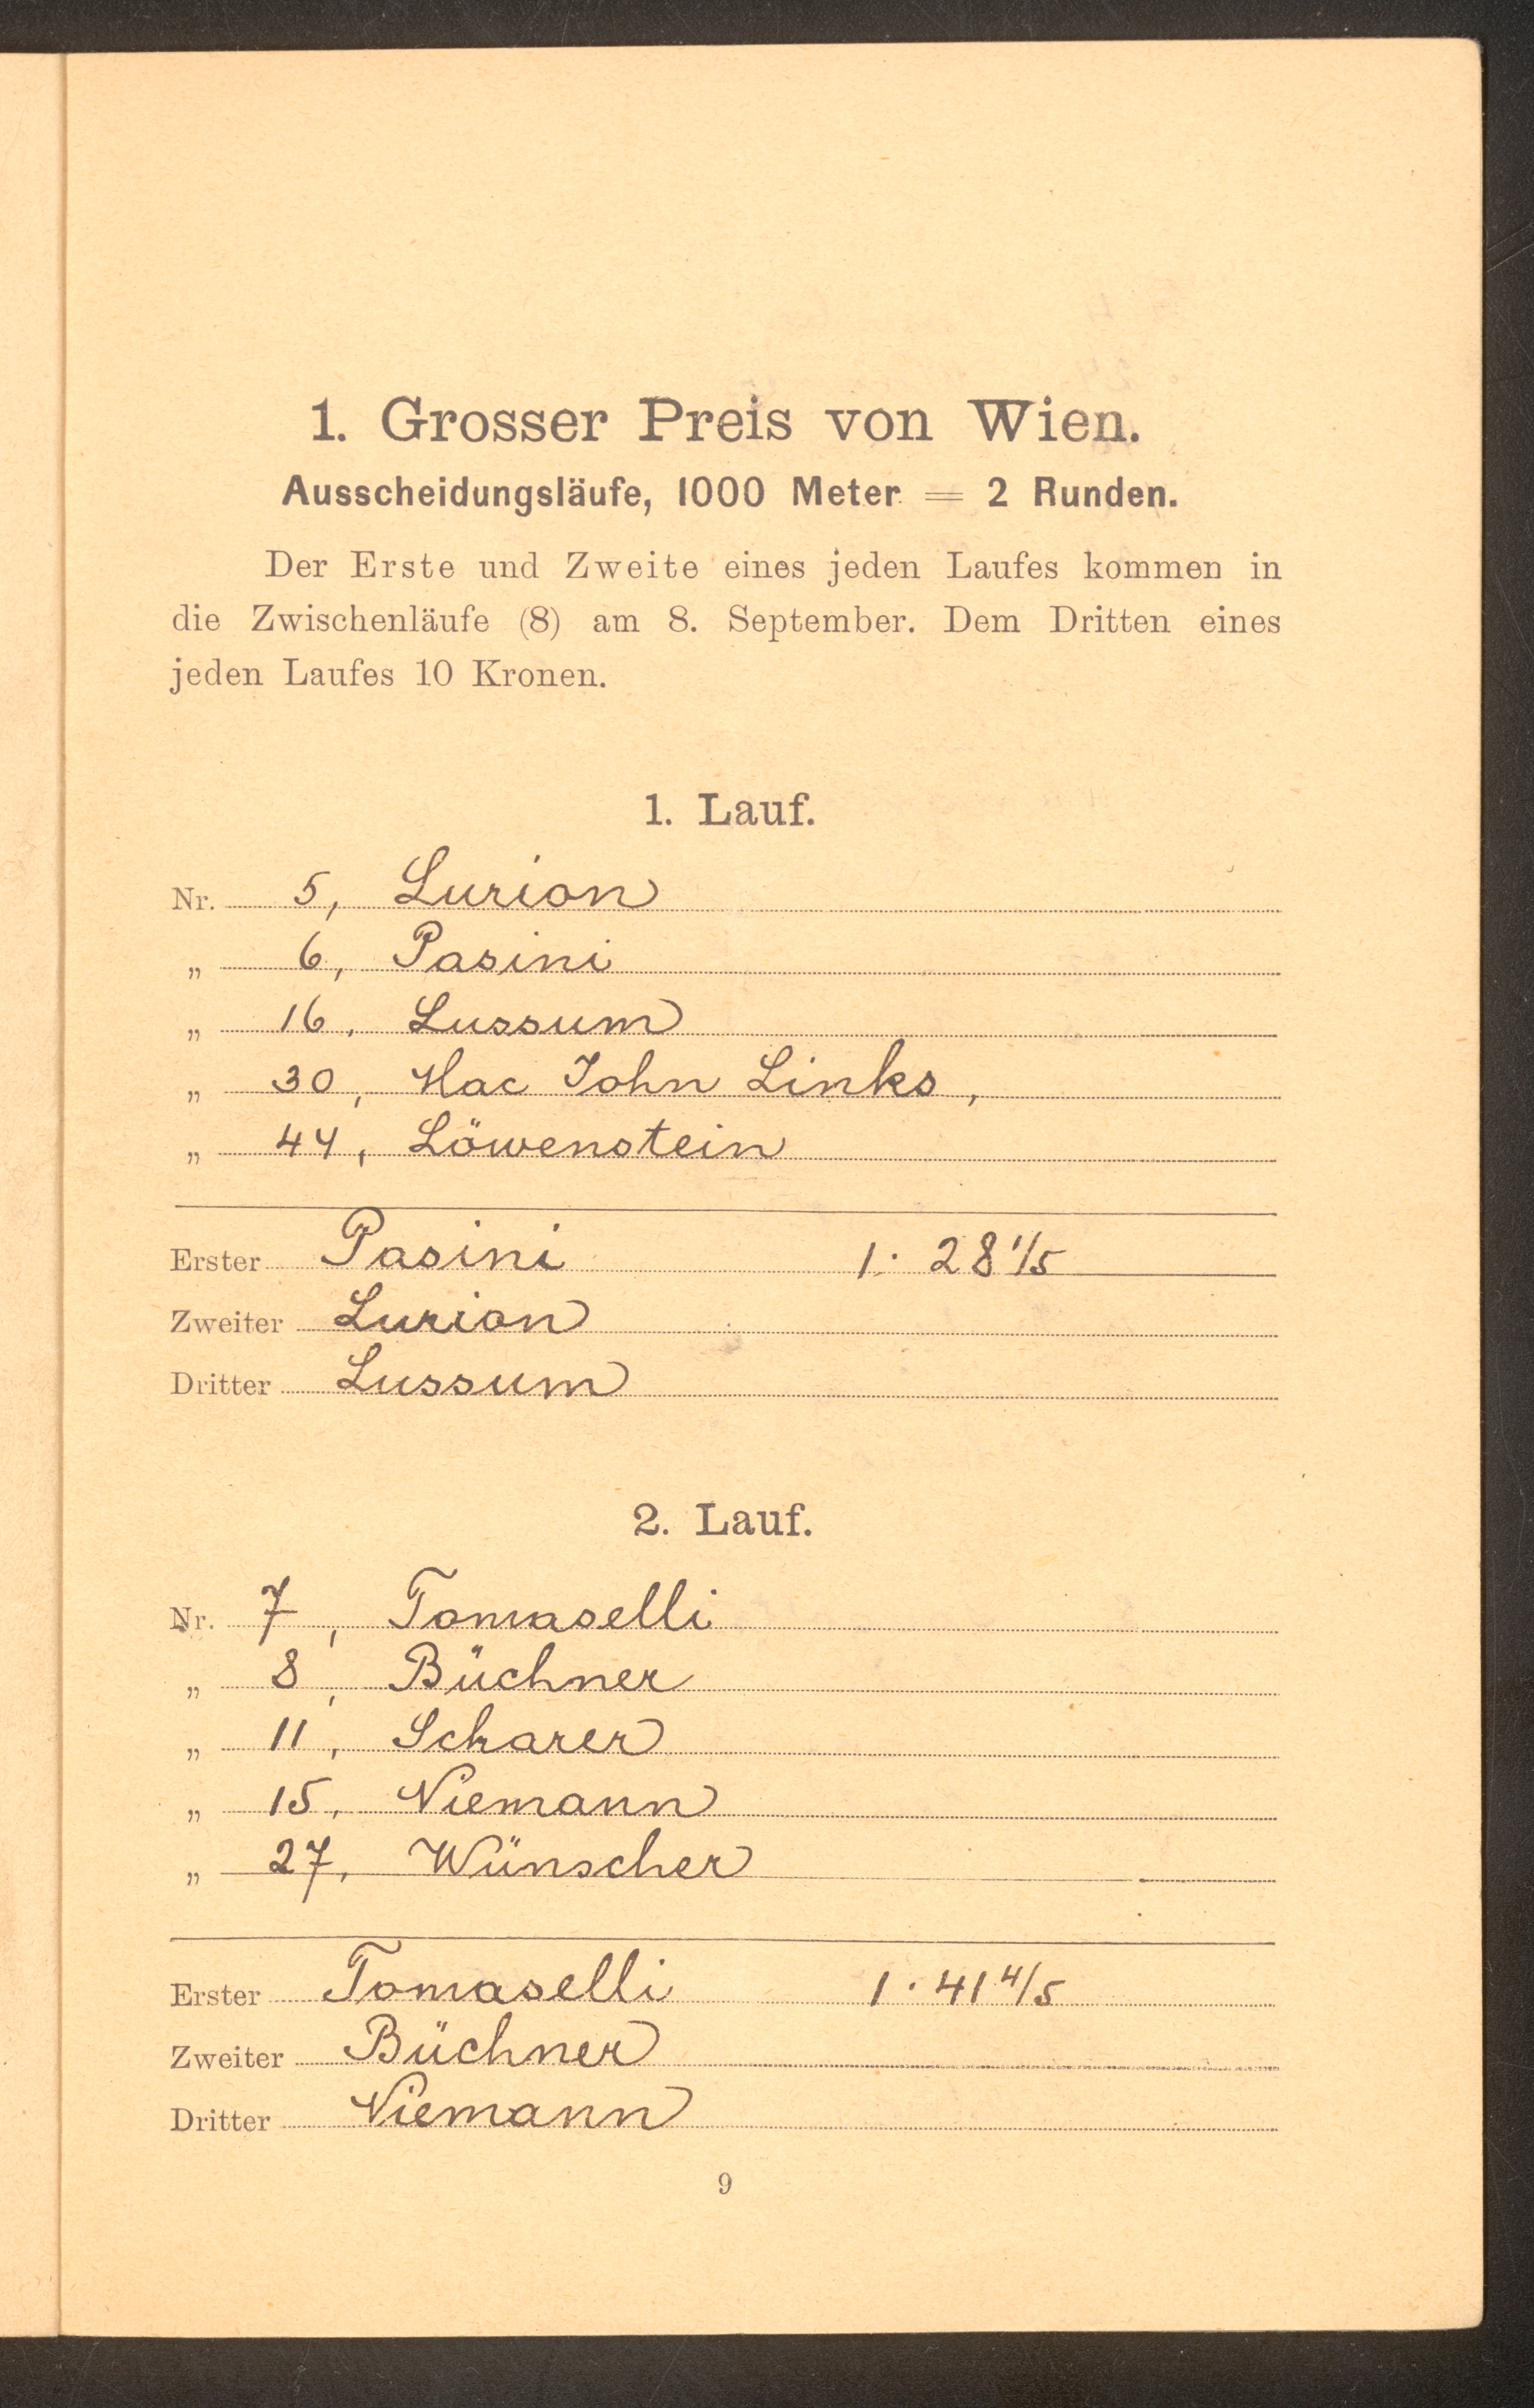 1. Grosser Preis von Wien.
Ausscheidungsläufe, 1000 Meter = 2 Runden.
Der Erste und Zweite eines jeden Laufes kommen in
die Zwischenläufe (8) am 8. September. Dem Dritten eines
jeden Laufes 10 Kronen.
1. Lauf.
Nr. 5, Lurion
„ 6, Pasini
„ 16, Lussum
„ 30, Mac John Links,
„ 44, Löwenstein
Erster Pasini 1. 28 1/5
Zweiter Lurion
Dritter Lussum
2. Lauf.
Nr. 7, Tomaselli
„ 8, Büchner
„ 11, Scharer
„ 15, Niemann
„ 27, Wünscher
Erster Tomaselli 1. 41 4/5
Zweiter Büchner
Dritter Niemann
9